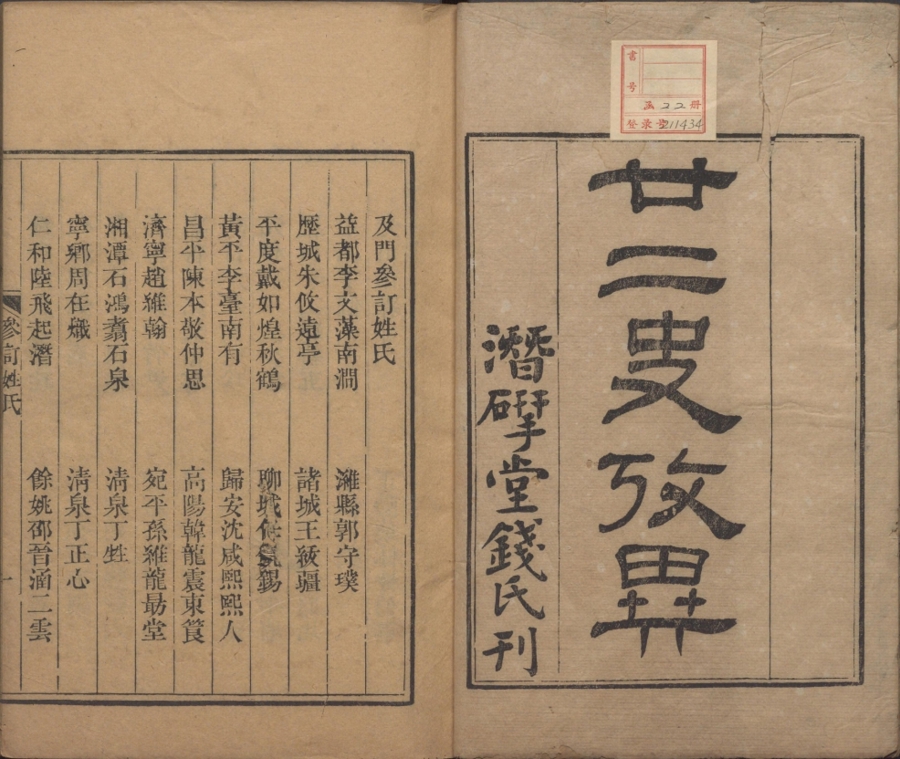 書号
函 22 册
登录号 211434
廿二史攷異
潛揅堂錢氏刊
及門參訂姓氏
益都李文藻南澗 濰縣郭守璞
歷城朱攸遠亭 諸城王紱疆
平度戴如煌秋鶴 聊城錫
黃平李臺南有 歸安沈咸熙熙人
昌平陳本敬仲思 高陽韓龍震東篔
濟寧趙維翰 宛平孫維龍最堂
湘潭石鴻翥石泉 清泉丁甡
寧鄉周在熾 清泉丁正心
仁和陸飛起潛 餘姚邵晉涵二雲
參訂姓氏 一